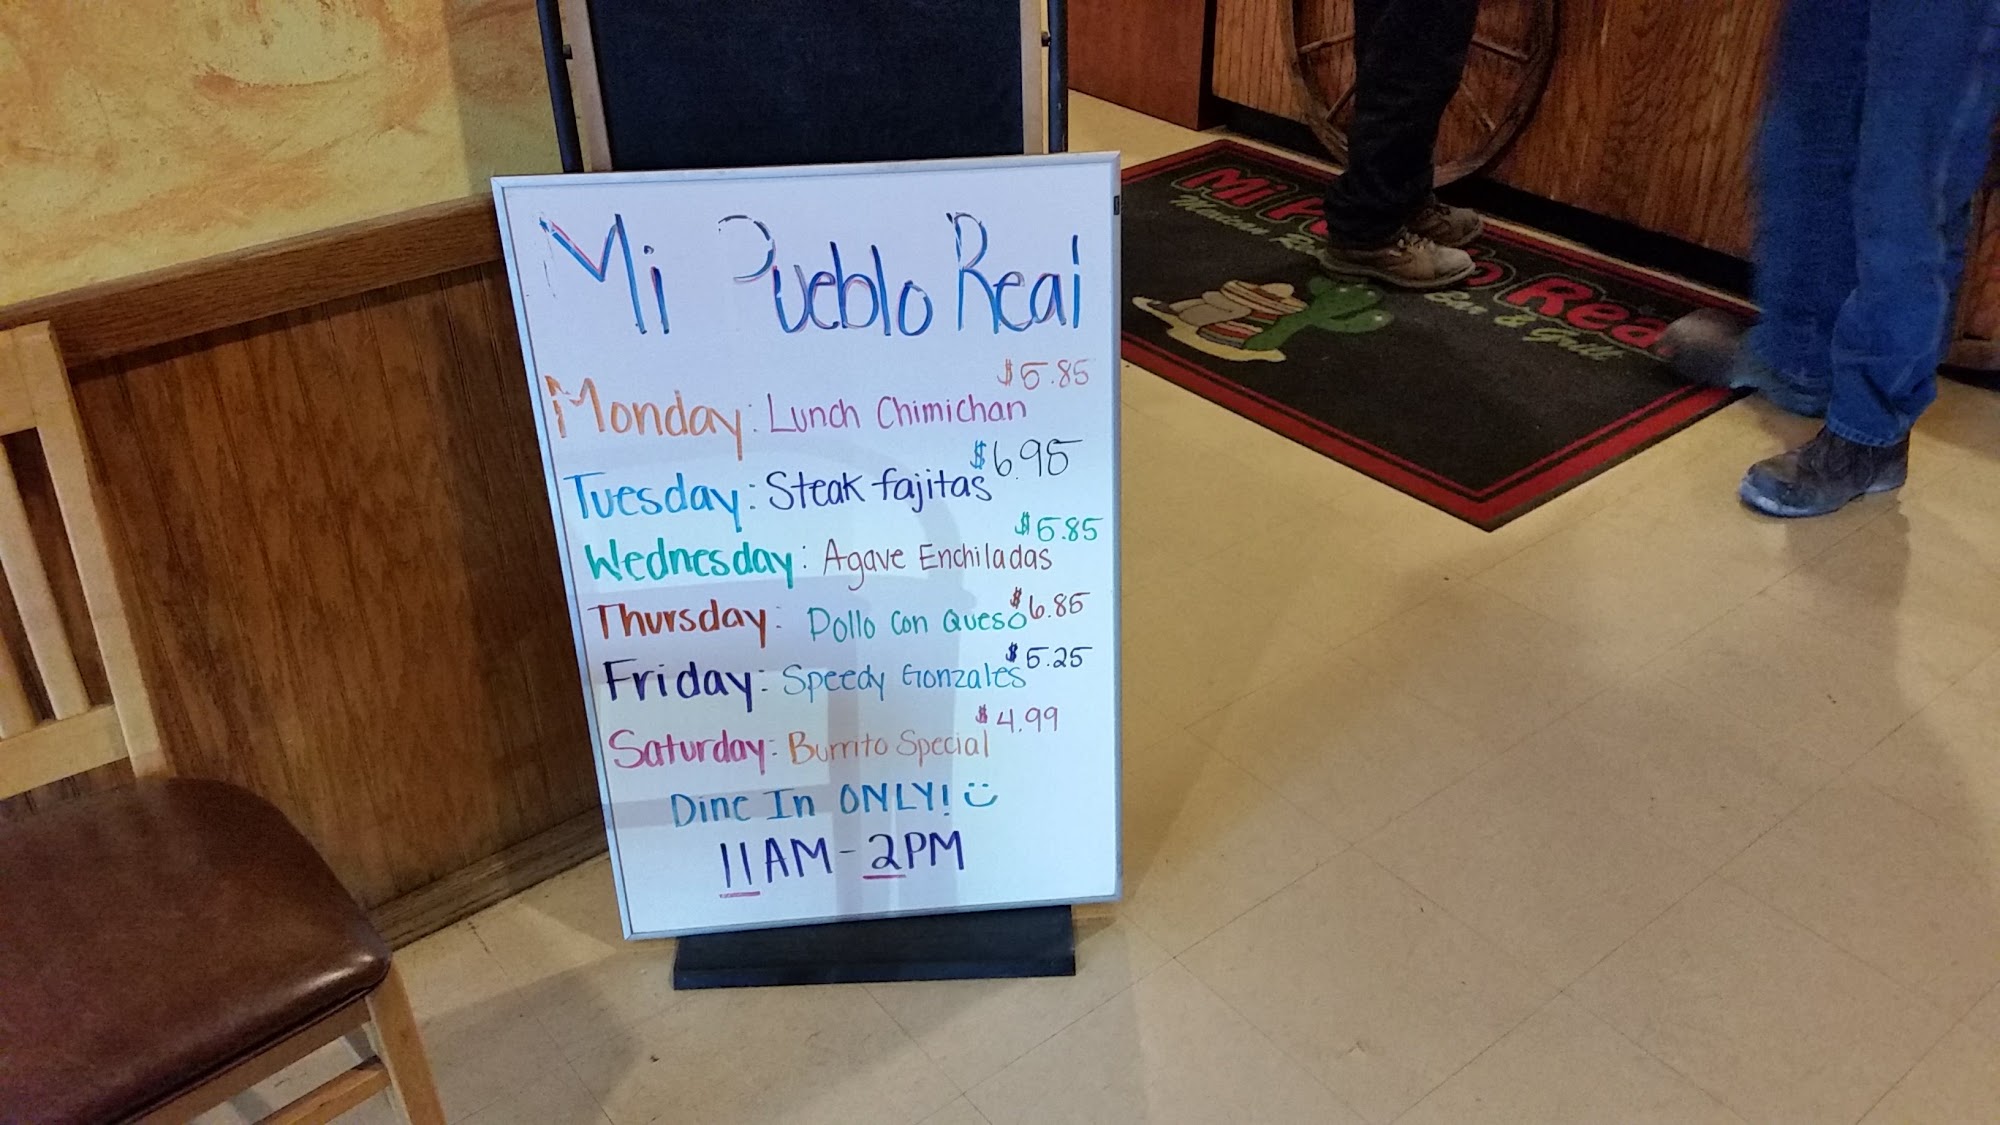 Mi Pueblo Real
Monday: Lunch Chimichan $5.85
Tuesday: Steak fajitas $6.95
Wednesday: Agave Enchiladas $5.85
Thursday: Pollo Con Queso $6.85
Friday: Speedy Gonzales $5.25
Saturday: Burrito Special $4.99
Dine In ONLY!
11AM - 2PM
Mi P Real
Mexican Bar & Grill